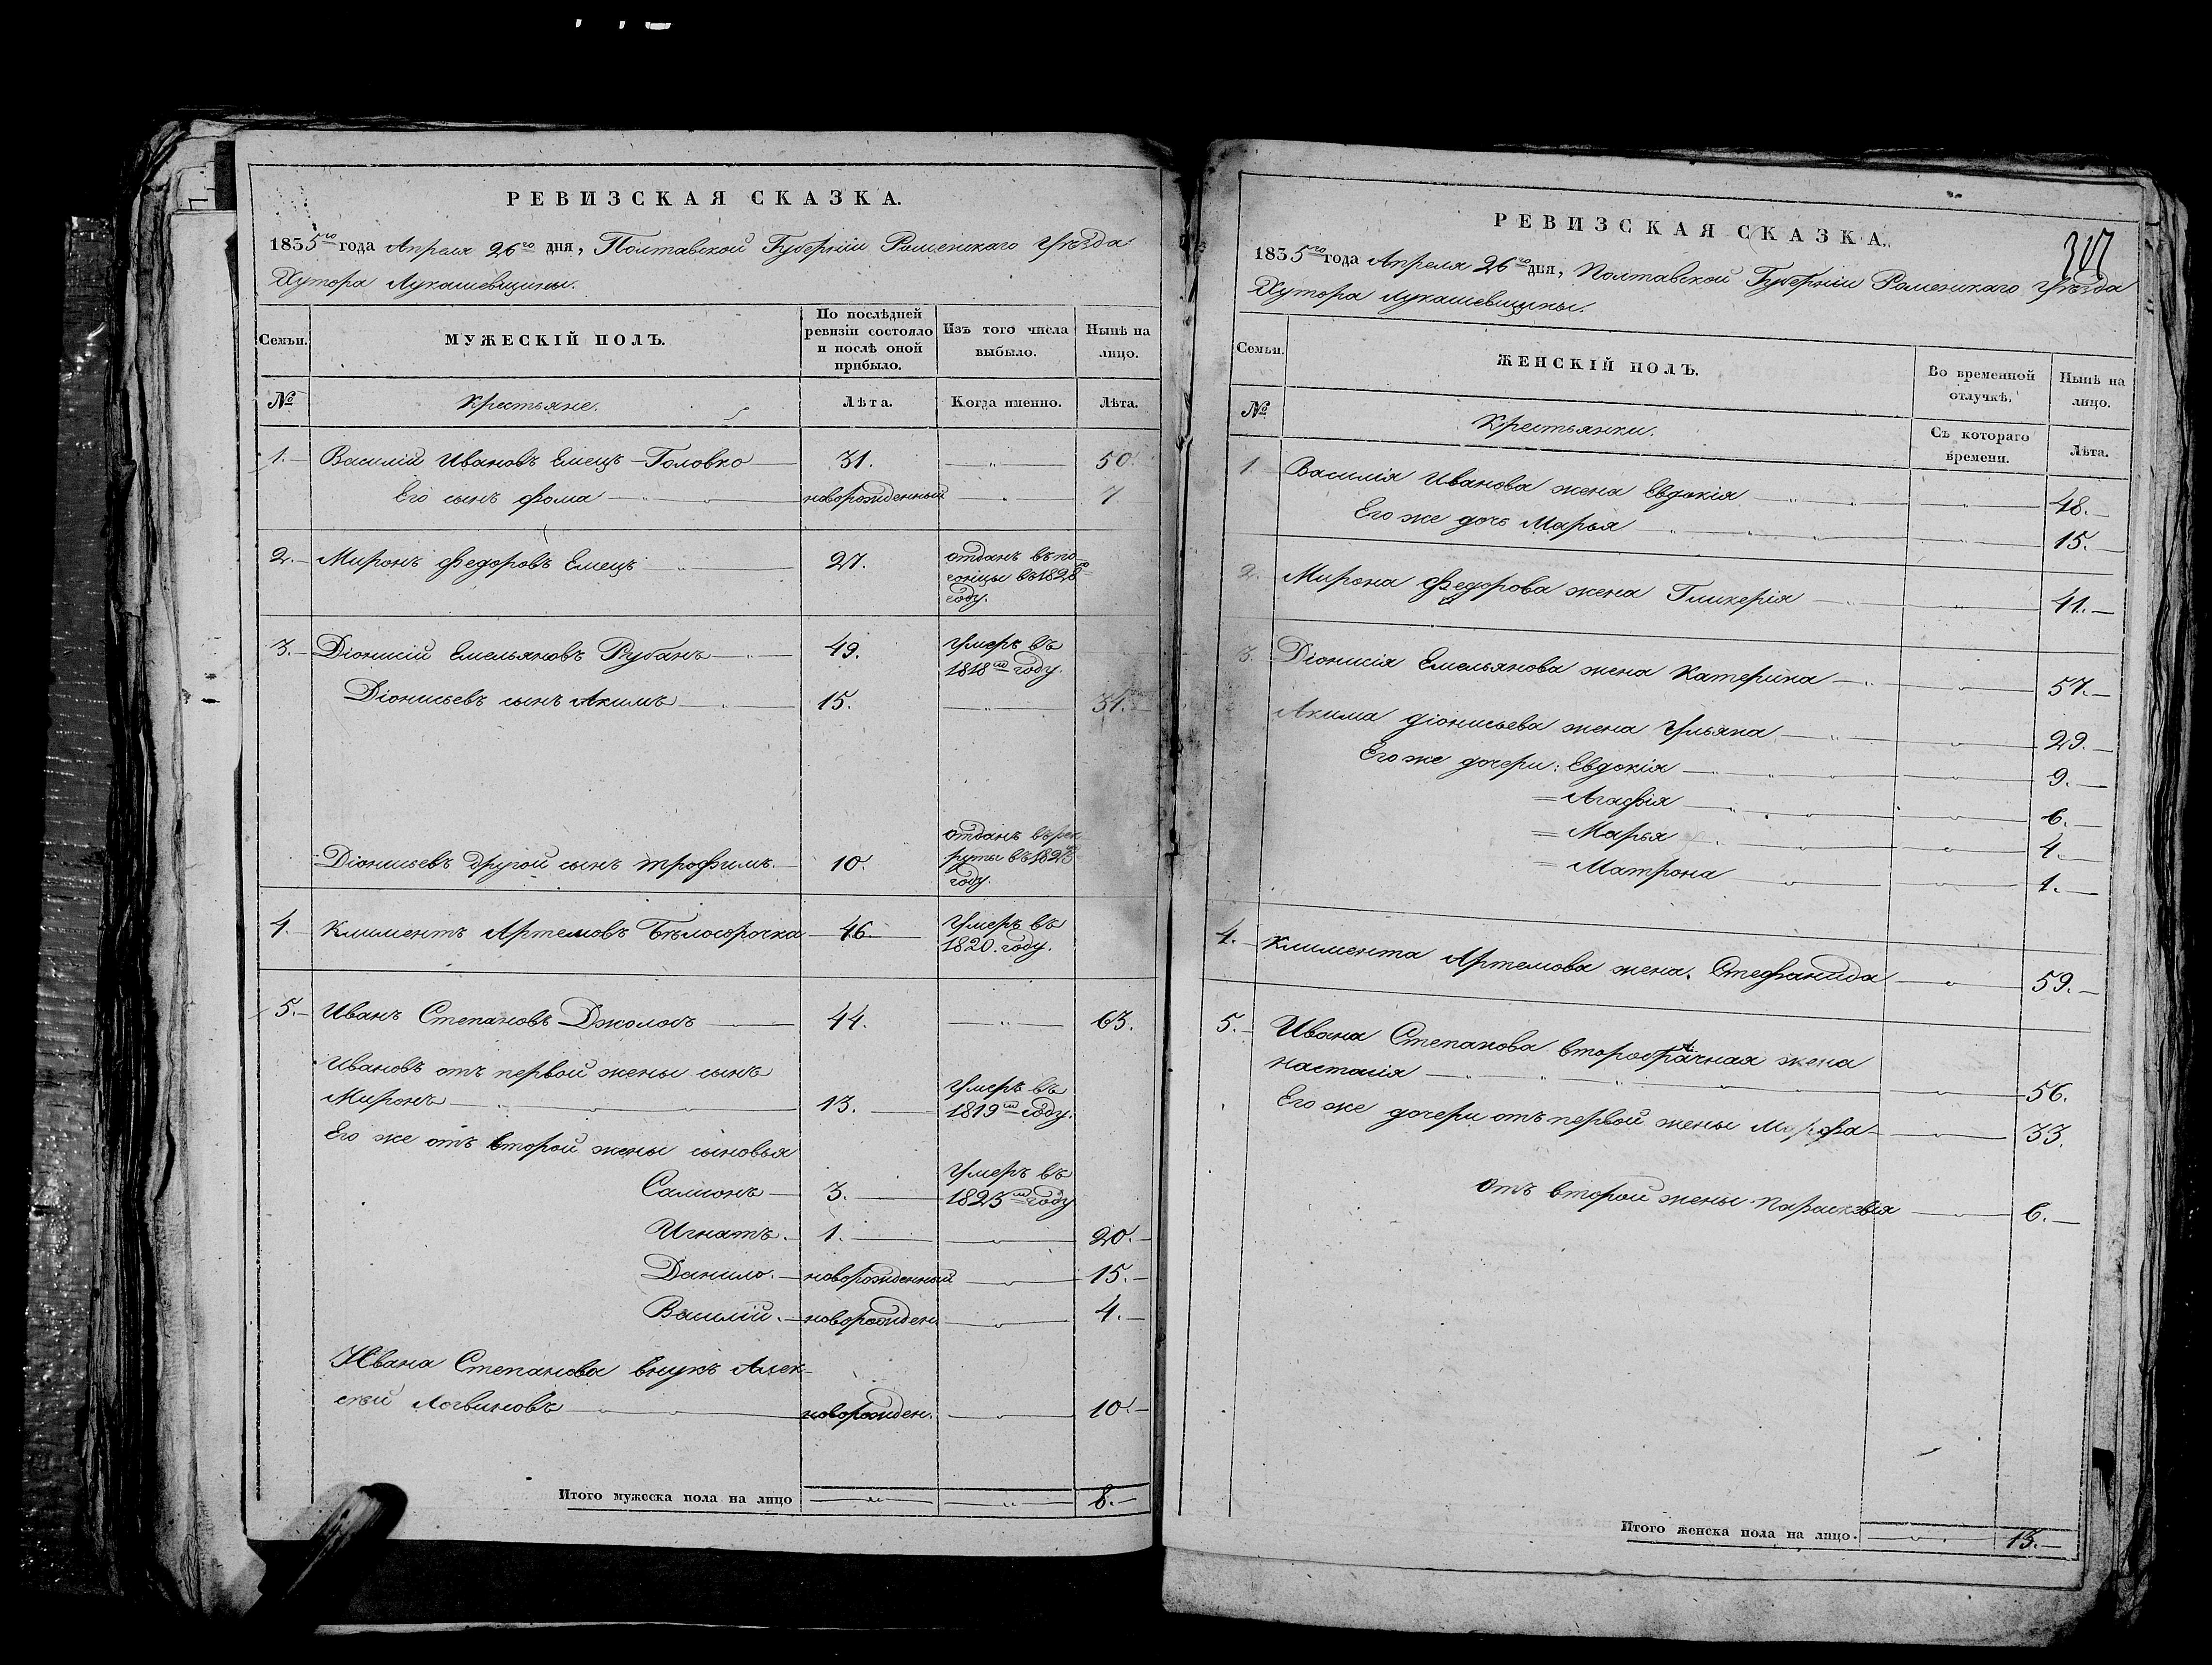 РЕВИЗСКАЯ СКАЗКА.
1835го года Апреля 26го дня, Полтавской Губернiи Роменскаго Уѣзда
Хутора Лукашевщины.
Семьи.
МУЖЕСКIЙ ПОЛЪ.
По послѣдней ревизiи состояло и послѣ оной прибыло.
Изъ того числа выбыло.
Нынѣ на лицо.
№
Крестьяне.
Лѣта.
Когда именно.
Лѣта.
1. Василiй Ивановъ Емецъ-Головко 31. 50.
Его сынъ Фома новорожденный 7
2. Миронъ Федоровъ Емецъ 27. отданъ въ по-
гонцы въ 1828м
году.
3. Дiонисiй Емельяновъ Рубанъ 49. Умеръ въ
1818м году.
Дiонисьевъ сынъ Акимъ 15. 31.
Дiонисьевъ другой сынъ Трофимъ. 10. отданъ въ рек
руты въ 1825
году.
4. Климентъ Артемовъ Бѣлосорочка 46. Умеръ въ
1820. году.
5. Иванъ Степановъ Джолосъ 44. 63.
Ивановъ отъ первой жены сынъ
Миронъ 13. Умеръ въ
1819м году.
Его же отъ второй жены сыновья
Самсонъ 3. Умеръ въ
1825м году
Игнатъ. 1. 20.
Данило. новорожденный 15.
Василiй. новорожден 4.
Ивана Степанова внукъ Алек-
сѣй Логвиновъ новорожден. 10.
Итого мужеска пола на лицо 8.
РЕВИЗСКАЯ СКАЗКА.
1835го года Апреля 26го дня, Полтавской Губернiи Роменскаго Уѣзда
Хутора Лукашевщины.
Семьи.
ЖЕНСКIЙ ПОЛЪ.
Во временной отлучкѣ.
Нынѣ на лицо.
№
Крестьянки.
Съ котораго времени.
Лѣта.
1. Василiя Иванова жена Евдокiя 48.
Его же дочь Марья 15.
2. Мирона Федорова жена Гликерiя 41.
3. Дiонисiя Емельянова жена Катерина 57.
Акима Дiонисьева жена Ульяна 29.
Его же дочери: Евдокiя 9.
= Агафiя 6.
= Марья 4.
= Матрона 1.
4. Климента Артемова жена. Стефанида 59.
5. Ивана Степанова второбрачная жена
настасiя 56.
Его же дочери отъ первой жены Марфа 33.
Отъ второй жены Парасковiя 6.
Итого женска пола на лицо. 13.